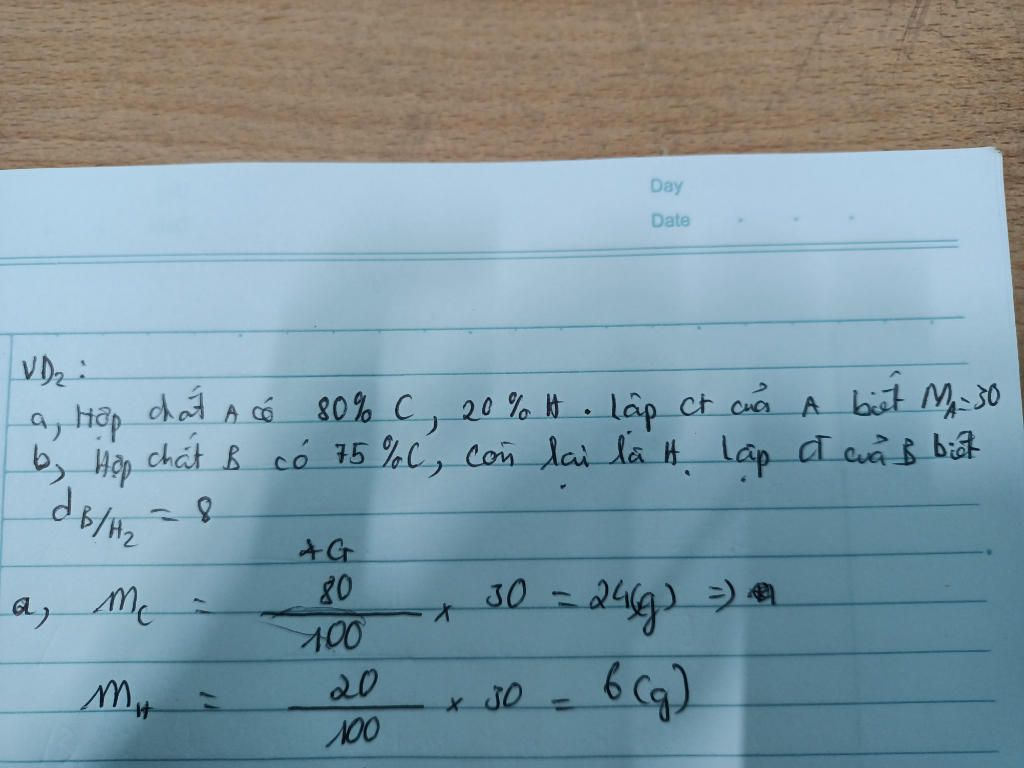 Day
Date
VD₂ :
a, Hợp chất A có 80% C, 20% H. Lập CT của A biết M_A=30
b, Hợp chất B có 75%C, còn lại là H. Lập CT của B biết
d_B/H₂ = 8
*G
a, m_C = 80/100 × 30 = 24(g) =>
m_H = 20/100 × 30 = 6(g)